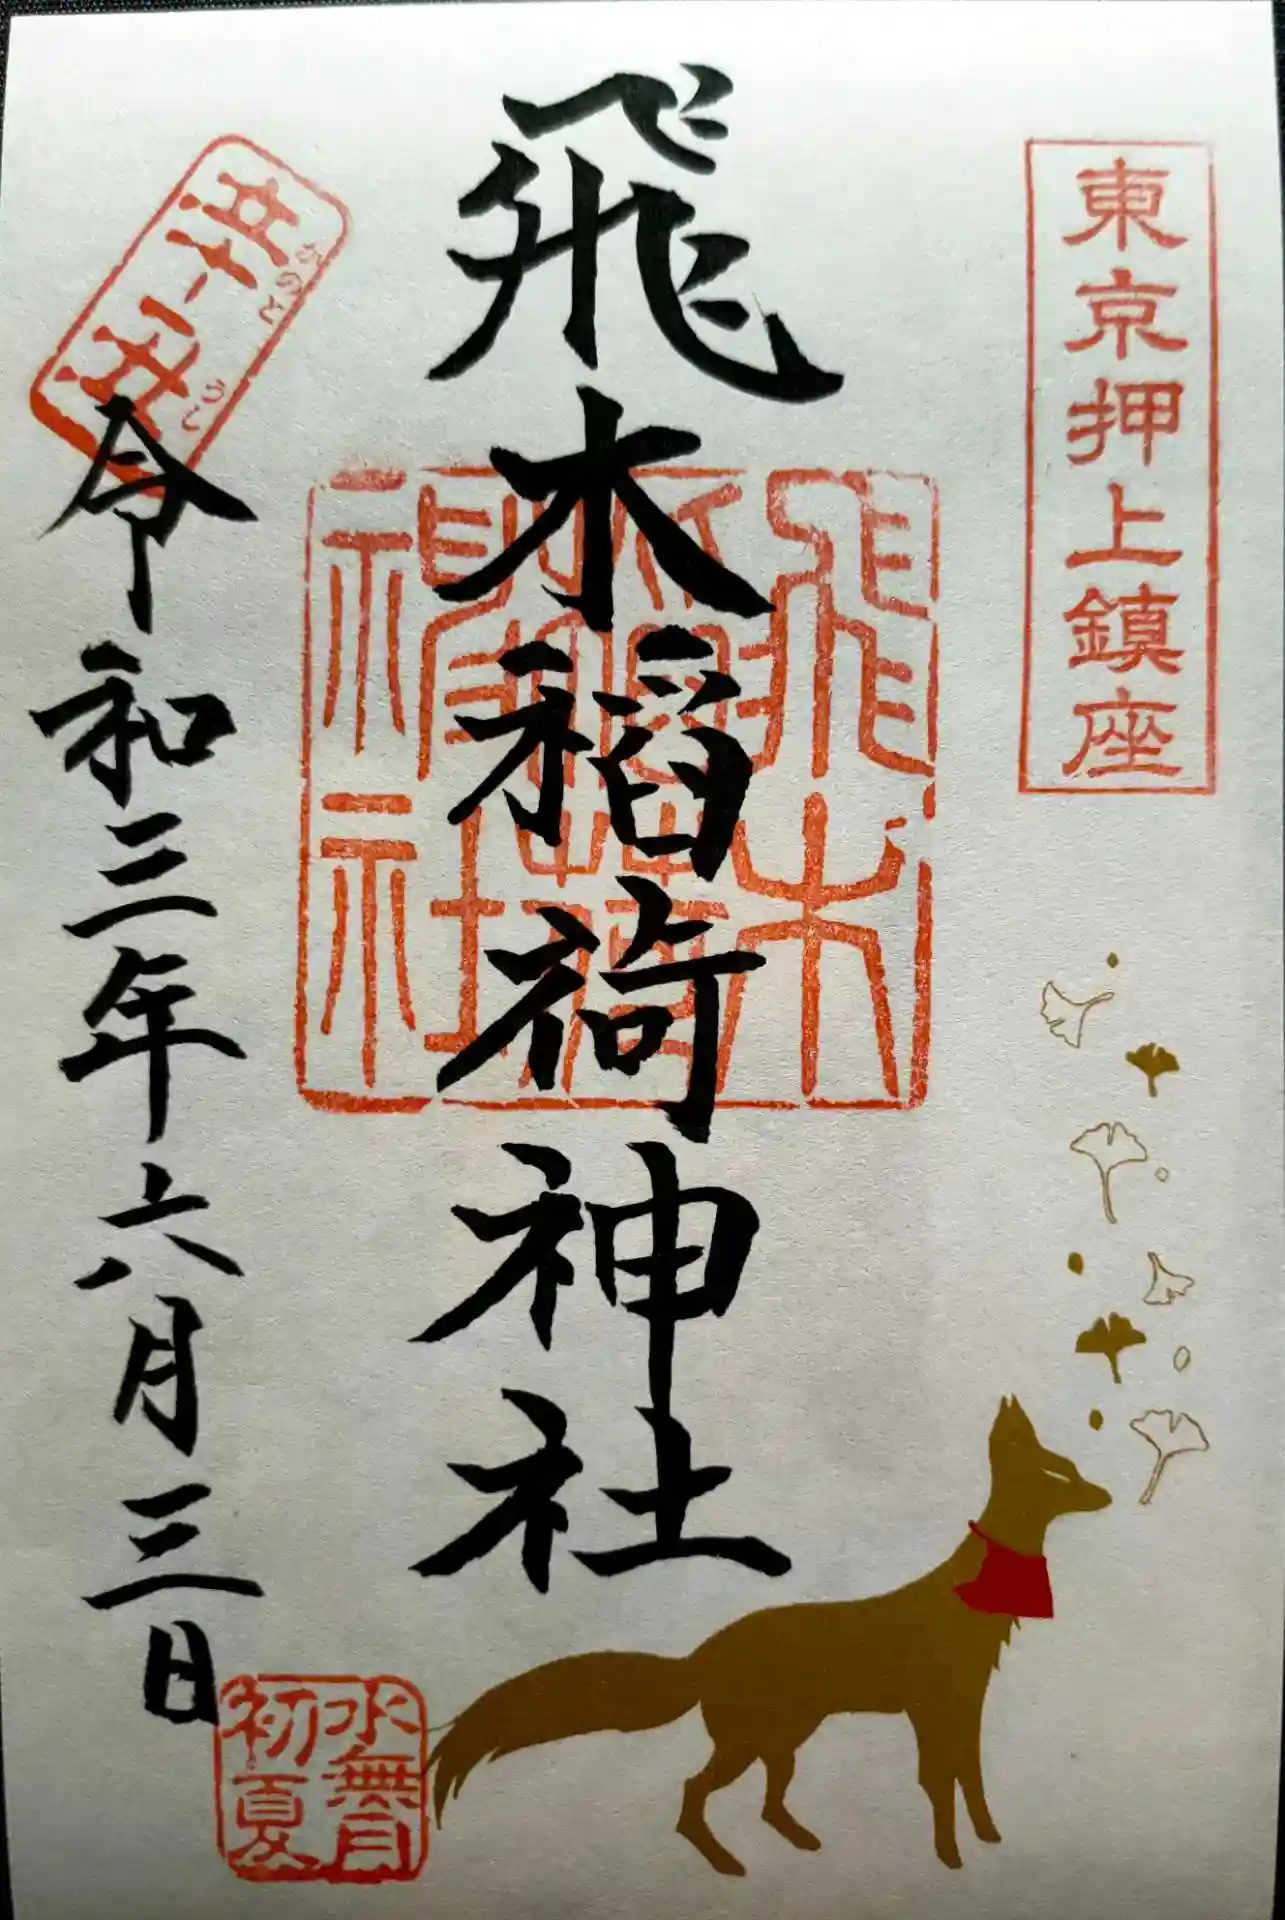 東京押上鎮座
飛木稲荷神社
飛木
稲荷
神社
令和三年六月三日
辛丑
かのと
うし
水無月
初夏